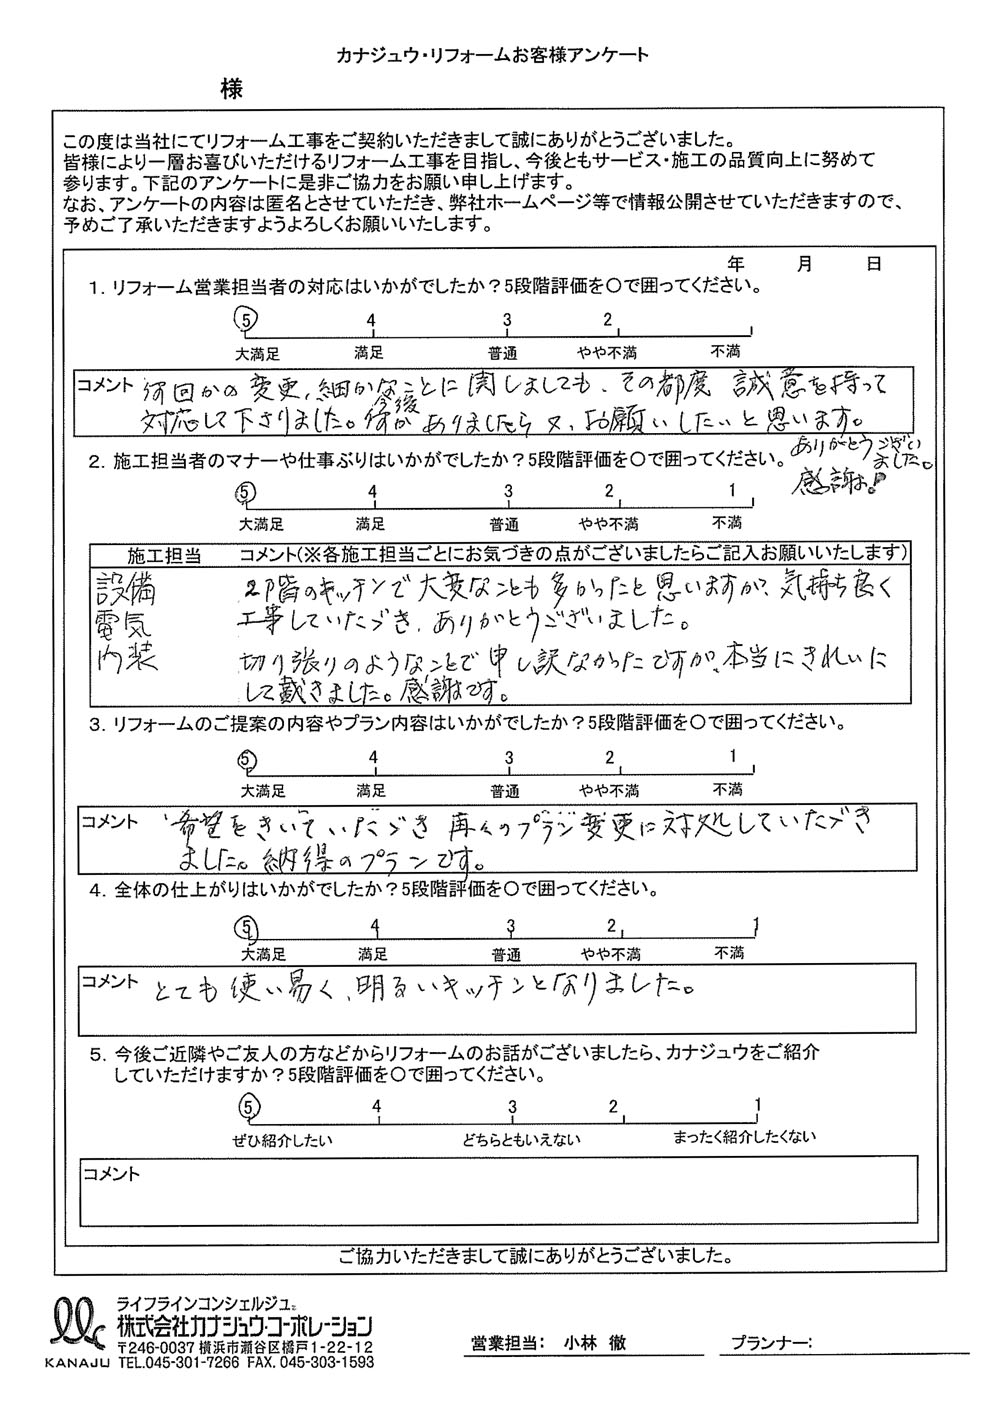 カナジュウ・リフォームお客様アンケート
様
この度は当社にてリフォーム工事をご契約いただきまして誠にありがとうございました。
皆様により一層お喜びいただけるリフォーム工事を目指し、今後ともサービス・施工の品質向上に努めて
参ります。下記のアンケートに是非ご協力をお願い申し上げます。
なお、アンケートの内容は匿名とさせていただき、弊社ホームページ等で情報公開させていただきますので、
予めご了承いただきますようよろしくお願いいたします。
年 月 日
1. リフォーム営業担当者の対応はいかがでしたか?5段階評価を〇で囲ってください。
5 4 3 2
大満足 満足 普通 やや不満 不満
コメント 何回かの変更、細かなことに関しましても、その都度 誠意を持って
今後
対応して下さりました。何かありましたら又、お願いしたいと思います。
ありがとうござい
ました。
感謝です!
2. 施工担当者のマナーや仕事ぶりはいかがでしたか?5段階評価を〇で囲ってください。
5 4 3 2 1
大満足 満足 普通 やや不満 不満
施工担当 コメント(※各施工担当ごとにお気づきの点がございましたらご記入お願いいたします)
設備 2階のキッチンで大変なことも多かったと思いますが、気持ち良く
電気 工事していただき、ありがとうございました。
内装 切り張りのようなことで申し訳なかったですが、本当にきれいに
して戴きました。感謝です。
3. リフォームのご提案の内容やプラン内容はいかがでしたか?5段階評価を〇で囲ってください。
5 4 3 2 1
大満足 満足 普通 やや不満 不満
コメント 希望をきいていただき 再々のプラン変更に対処していただき
ました。納得のプランです。
4. 全体の仕上がりはいかがでしたか?5段階評価を〇で囲ってください。
5 4 3 2 1
大満足 満足 普通 やや不満 不満
コメント とても使い易く、明るいキッチンとなりました。
5. 今後ご近隣やご友人の方などからリフォームのお話がございましたら、カナジュウをご紹介
していただけますか?5段階評価を〇で囲ってください。
5 4 3 2 1
ぜひ紹介したい どちらともいえない まったく紹介したくない
コメント
ご協力いただきまして誠にありがとうございました。
ライフラインコンシェルジュ®
株式会社カナジュウ・コーポレーション
〒246-0037 横浜市瀬谷区橋戸1-22-12
KANAJU TEL.045-301-7266 FAX. 045-303-1593
営業担当: 小林 徹 プランナー: